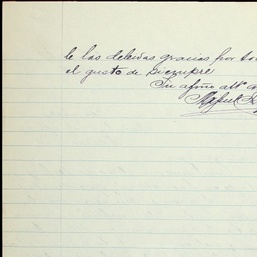 le las debidas gracias por to
el gusto de siempre
Su afmo att
Rafael